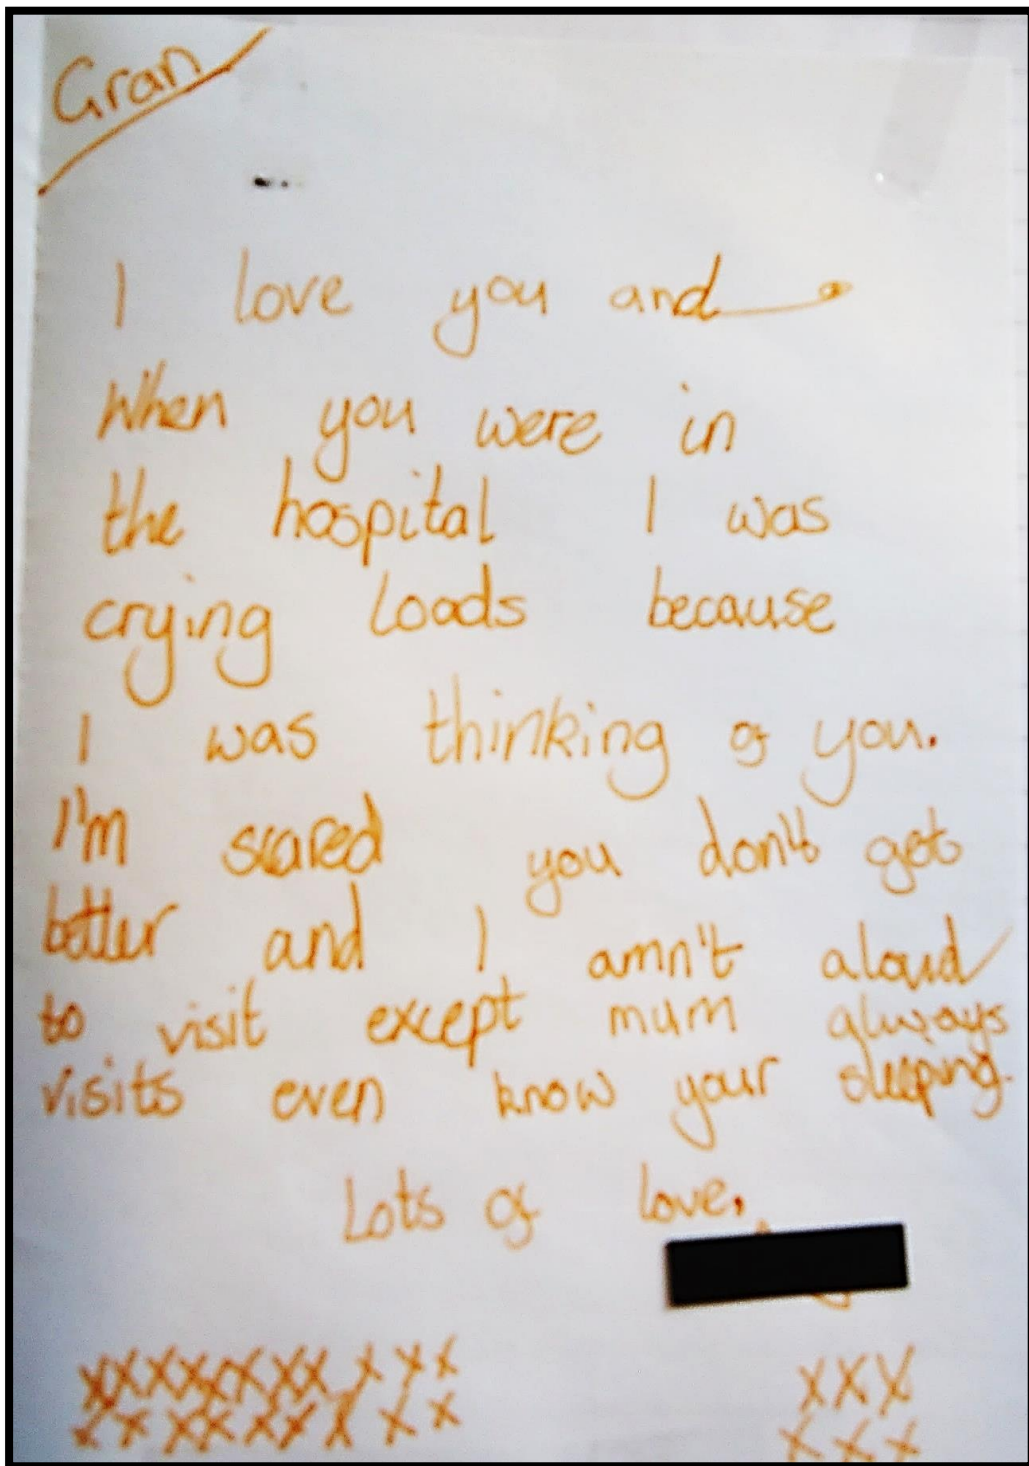 Gran
I love you and
When you were in
the hospital I was
crying loads because
I was thinking of you.
I'm scared you don't get
better and I amn't aloud
to visit except mum always
visits even know your sleeping.
Lots of love,
xxxxxxxx x x x xxx
x x xxxxx x x x xxx